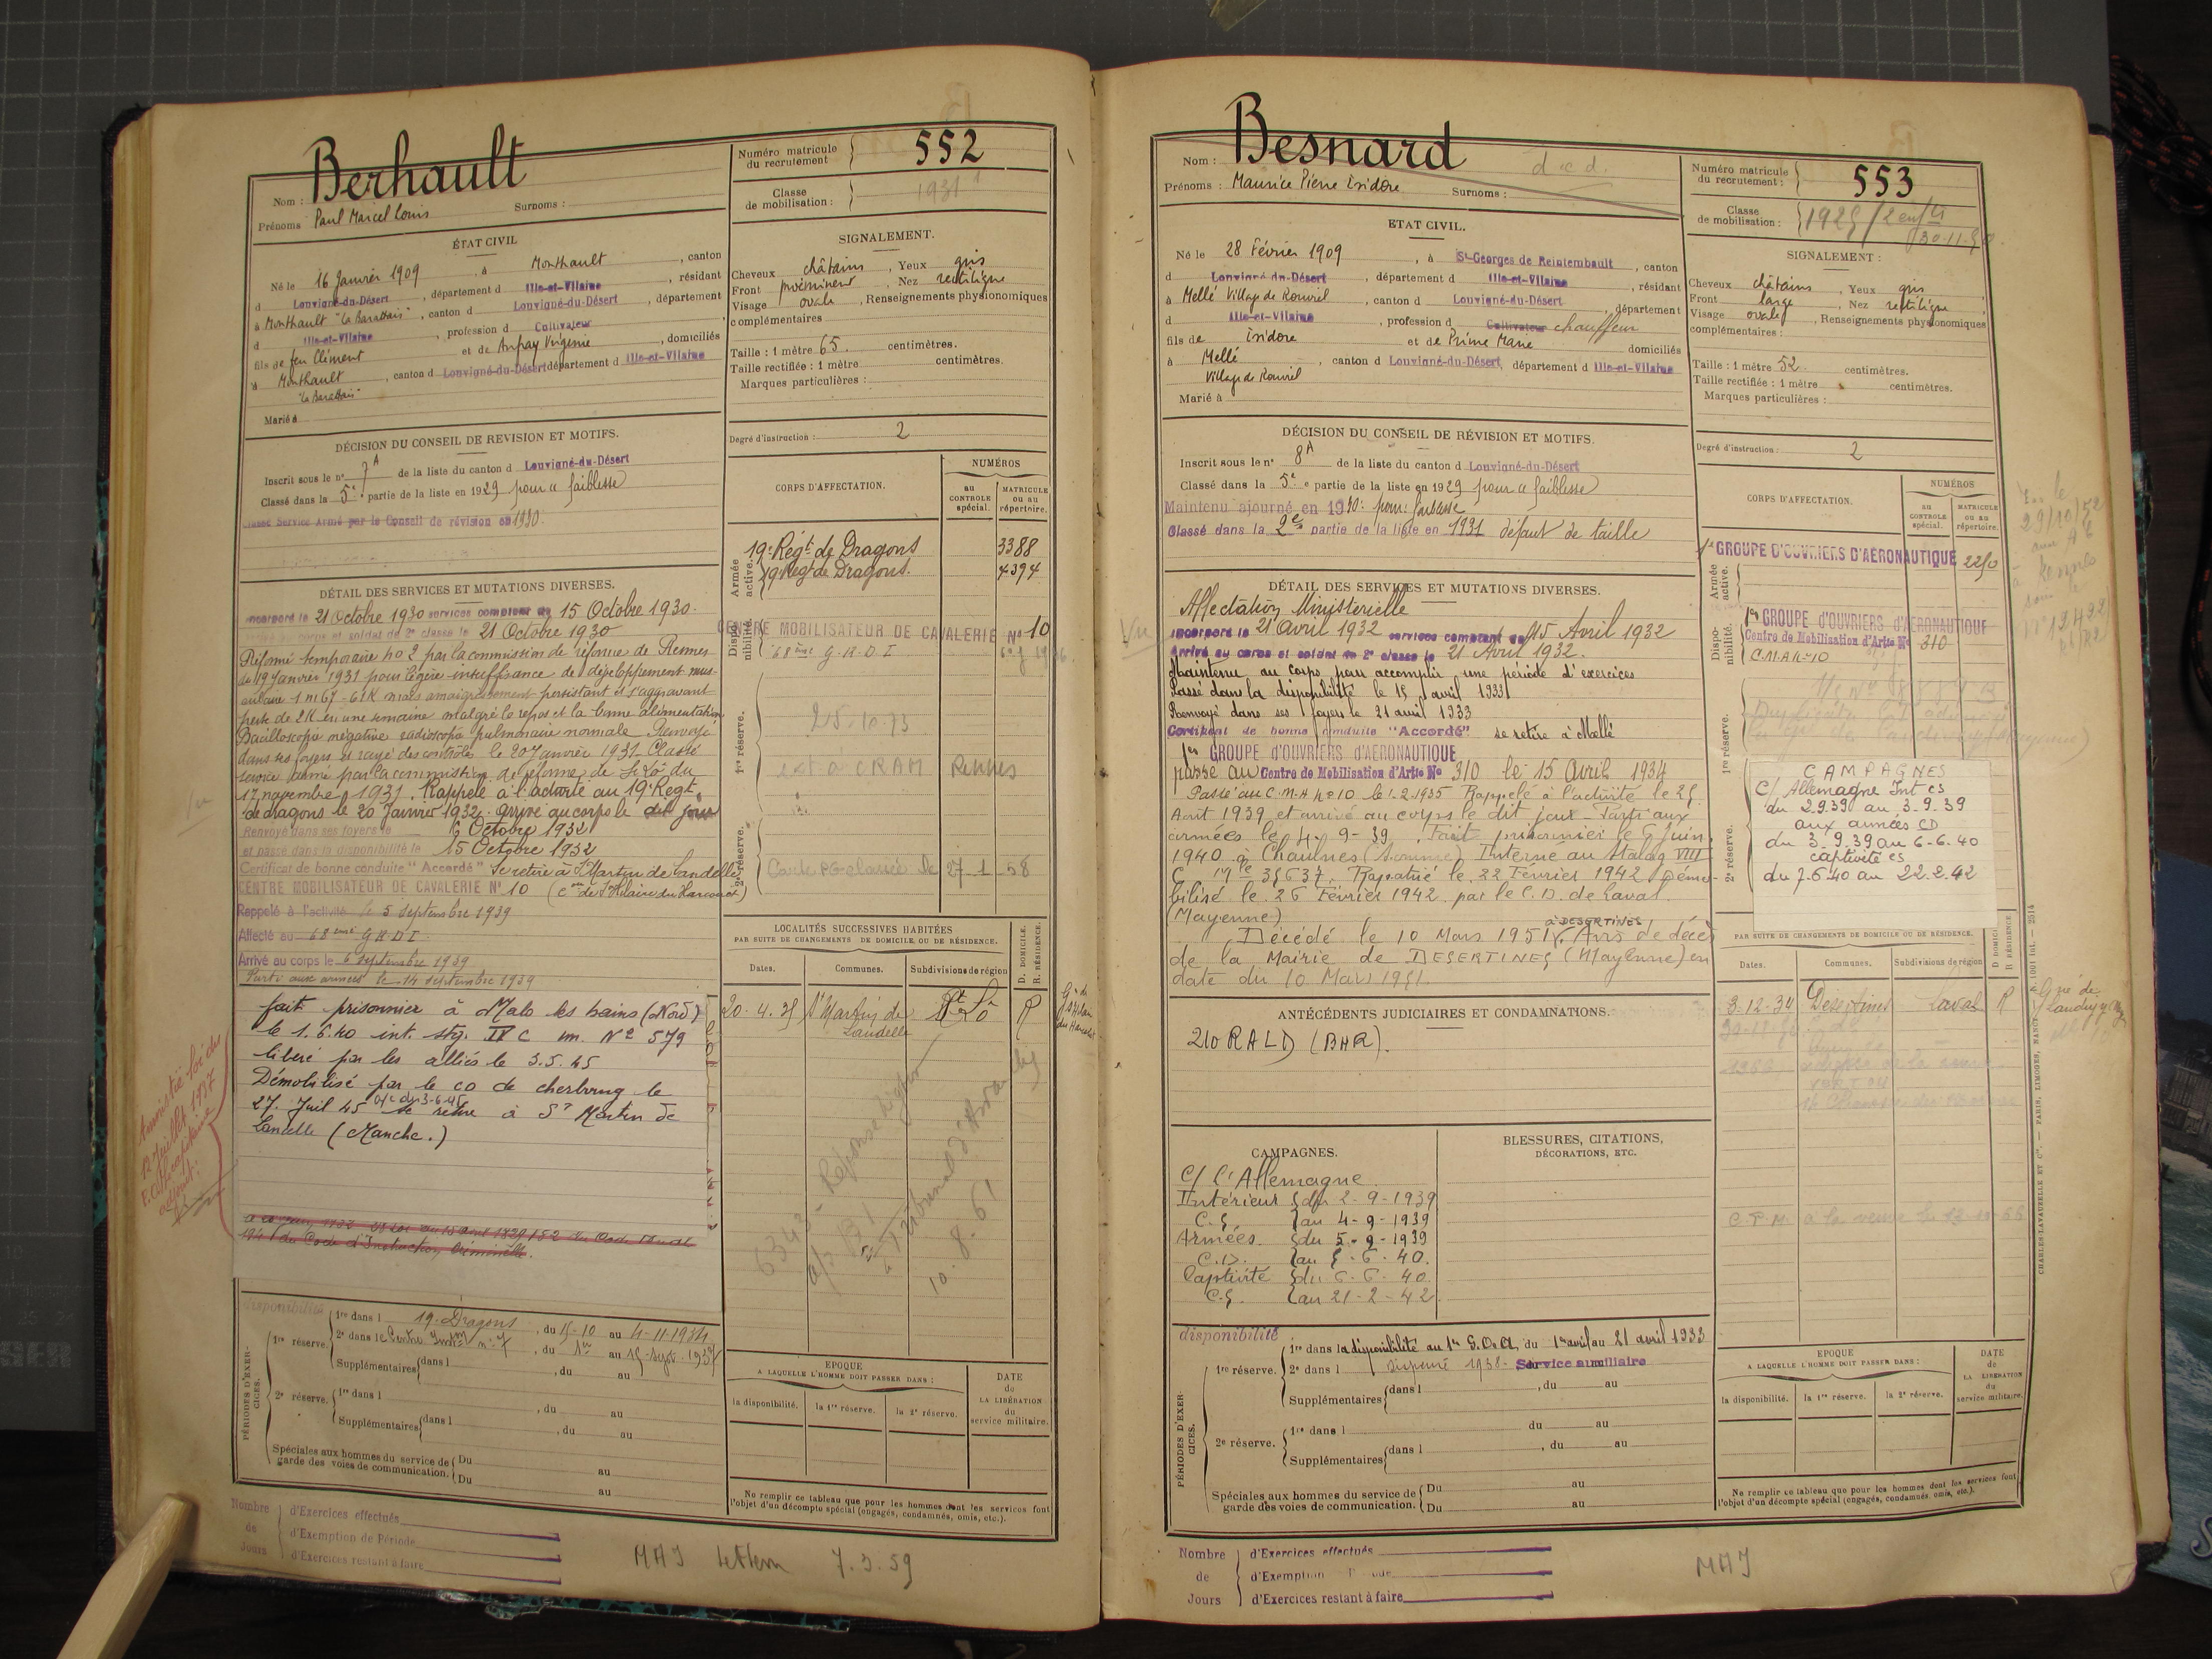 Berhault
Nom :
Prénoms Paul Marcel Louis Surnoms :
Numéro matricule du recrutement 552
Classe de mobilisation : 1931
ÉTAT CIVIL
Né le 16 Janvier 1909, à Monthault, canton
d Louvigné-du-Désert, département d Ille-et-Vilaine, résidant
à Monthault "La Barattais", canton d Louvigné-du-Désert, département
d Ille-et-Vilaine, profession d Cultivateur
fils de feu Clément et de Anpay Virginie, domiciliés
à Monthault, canton d Louvigné-du-Désert département d Ille-et-Vilaine
"La Barattais"
Marié à
SIGNALEMENT.
Cheveux châtains, Yeux gris
Front proéminent, Nez rectiligne
Visage ovale, Renseignements physionomiques
complémentaires
Taille : 1 mètre 65 centimètres.
Taille rectifiée : 1 mètre centimètres.
Marques particulières :
Degré d'instruction : 2
DÉCISION DU CONSEIL DE REVISION ET MOTIFS.
Inscrit sous le n° 7A de la liste du canton d Louvigné-du-Désert
Classé dans la 5e partie de la liste en 1929 pour "faiblesse"
Classé Service Armé par le Conseil de révision en 1930.
CORPS D'AFFECTATION.
NUMÉROS
au CONTROLE spécial.
MATRICULE ou au répertoire.
Armée active.
19e Régt de Dragons 3388
19e Régt de Dragons. 4394
Disponibilité.
CENTRE MOBILISATEUR DE CAVALERIE N° 10
68ème G.R.D.I
1re réserve.
est à CRAM Rennes
2e réserve.
27-1-58
DÉTAIL DES SERVICES ET MUTATIONS DIVERSES.
Incorporé le 21 Octobre 1930 services comptant du 15 Octobre 1930.
Arrivé au corps et soldat de 2e classe le 21 Octobre 1930
Réformé temporaire no 2 par la commission de réforme de Rennes
du 19 Janvier 1931 pour légère insuffisance de développement mus-
culaire 1m67 - 61K mais amaigrissement persistant et s'aggravant
perte de 2K en une semaine malgré le repos et la bonne alimentation
Bacilloscopie négative radioscopie pulmonaire normale Renvoyé
dans ses foyers et rayé des contrôles le 20 Janvier 1931. Classé
service armé par la commission de réforme de St Lô du
17 novembre 1931. Rappelé à l'activité au 19e Régt
de dragons le 20 Janvier 1932. Arrivé au corps le dit jour
Renvoyé dans ses foyers le 6 Octobre 1932
et passé dans la disponibilité le 15 Octobre 1932
Certificat de bonne conduite "Accordé" Se retire à St Martin de Landelle
CENTRE MOBILISATEUR DE CAVALERIE N° 10 (con de St Hilaire du Harcouet)
Rappelé à l'activité le 5 Septembre 1939
Affecté au 68ème G R D I
Arrivé au corps le 6 septembre 1939
Parti aux armées le 14 septembre 1939
fait prisonnier à Malo les bains (Nord)
le 1.6.40 int. stg. IV C im. N° 579
libéré par les alliés le 3.5.45
Démobilisé par le CO de cherbourg le
27. Juil 45 a/c du 3-6-45 se retire à St Martin de
Landelle (Manche.)
Amnistié loi du
12 Juillet 1937
du Code d'Instruction Criminelle.
LOCALITÉS SUCCESSIVES HABITÉES
PAR SUITE DE CHANGEMENTS DE DOMICILE OU DE RÉSIDENCE.
Dates. Communes. Subdivisions de région D. DOMICILE. R. RÉSIDENCE.
20.4.35 St Martin de Landelle St Lô R
10.8.61
PÉRIODES D'EXERCICES.
disponibilité
1re réserve.
1re dans l 19. Dragons, du 15-10 au 4-11-1934
2e dans l e Centre n° 7, du 1er au 15 Sept. 1937
Supplémentaires dans l , du au
2e réserve.
1re dans l , du au
Supplémentaires dans l , du au
Spéciales aux hommes du service de garde des voies de communication. Du au
Du au
EPOQUE
A LAQUELLE L'HOMME DOIT PASSER DANS :
la disponibilité. la 1re réserve. la 2e réserve.
DATE de LA LIBÉRATION du service militaire.
Ne remplir ce tableau que pour les hommes dont les services font
l'objet d'un décompte spécial (engagés, condamnés, omis, etc.).
Nombre de Jours
d'Exercices effectués
d'Exemption de Période
d'Exercices restant à faire
MAJ 7.3.59
Besnard
Nom : d.c.d.
Prénoms : Maurice Pierre Isidore Surnoms :
Numéro matricule du recrutement : 553
Classe de mobilisation :
ETAT CIVIL.
Né le 28 Février 1909, à St-Georges de Reintembault, canton
d Louvigné-du-Désert, département d Ille-et-Vilaine, résidant
à Mellé Village de Rouvril, canton d Louvigné-du-Désert, département
d Ille-et-Vilaine, profession d Cultivateur chauffeur
fils de Isidore et de Prime Marie domiciliés
à Mellé, canton d Louvigné-du-Désert, département d Ille-et-Vilaine
Village de Rouvril
Marié à
SIGNALEMENT :
Cheveux châtains, Yeux gris
Front large, Nez rectiligne
Visage ovale, Renseignements physionomiques
complémentaires :
Taille : 1 mètre 52 centimètres.
Taille rectifiée : 1 mètre centimètres.
Marques particulières :
Degré d'instruction : 2
DÉCISION DU CONSEIL DE RÉVISION ET MOTIFS.
Inscrit sous le n° 8A de la liste du canton d Louvigné-du-Désert
Classé dans la 5e partie de la liste en 1929 pour "faiblesse"
Maintenu ajourné en 1930: pour: faiblesse
Classé dans la 2e partie de la liste en 1931 défaut de taille
CORPS D'AFFECTATION.
NUMÉROS
au CONTROLE spécial.
MATRICULE ou au répertoire.
Armée active.
1er GROUPE D'OUVRIERS D'AÉRONAUTIQUE
Disponibilité.
1er GROUPE D'OUVRIERS D'AÉRONAUTIQUE
Centre de Mobilisation d'Artie N° 310
C.M.A n°10
1re réserve.
2e réserve.
CAMPAGNES
C/ Allemagne Int CS
du 2.9.39 au 3.9.39
aux armées CD
du 3.9.39 au 6-6.40
captivité CS
du 7.6.40 au 22.2.42
DÉTAIL DES SERVICES ET MUTATIONS DIVERSES.
Affectation Ministérielle
Vu
Incorporé le 21 avril 1932 services comptant du 15 Avril 1932
Arrivé au corps et soldat de 2e classe le 21 Avril 1932.
Maintenu au corps pour accomplir une période d'exercices
Passé dans la disponibilité le 15 avril 1933
Renvoyé dans ses foyers le 21 avril 1933
Certificat de bonne conduite "Accordé" se retire à Mellé
1er GROUPE D'OUVRIERS D'AÉRONAUTIQUE
passé au Centre de Mobilisation d'Artie N° 310 le 15 Avril 1934
Passé au C.M.A n°10 le 1.2.1935 Rappelé à l'activité le 25
Août 1939 et arrivé au corps le dit jour - Parti aux
armées le 4-9-39. Fait prisonnier le 6 Juin
1940 à Chaulnes (Somme) Interné au Stalag VIII
C Mle 35637. Rapatrié le 22 Février 1942 Démo-
bilisé le 26 Février 1942 par le C.D. de Laval
(Mayenne)
Décédé le 10 Mars 1951 à DESERTINES, Avis de décès
de la Mairie de DESERTINES (Mayenne) en
date du 10 Mars 1951.
ANTÉCÉDENTS JUDICIAIRES ET CONDAMNATIONS.
210 RALD (BHR).
CAMPAGNES.
C/ l'Allemagne
Intérieur du 2-9-1939
C.S. au 4-9-1939
Armées du 5-9-1939
C.D. au 5-6-40.
Captivité du 6-6-40
C.S. au 21-2-42
BLESSURES, CITATIONS,
DÉCORATIONS, ETC.
PAR SUITE DE CHANGEMENTS DE DOMICILE OU DE RÉSIDENCE.
Dates. Communes. Subdivisions de région
3-12-34 Désertines Laval R
PÉRIODES D'EXERCICES.
disponibilité
1re réserve.
1re dans la disponibilité au 1er G.O.A, du 1er avril au 21 avril 1933
2e dans l dispensé 1938 - Service auxiliaire
Supplémentaires dans l , du au
2e réserve.
1re dans l du au
Supplémentaires dans l , du au
Spéciales aux hommes du service de garde des voies de communication. Du au
Du au
EPOQUE
A LAQUELLE L'HOMME DOIT PASSER DANS :
la disponibilité. la 1re réserve. la 2e réserve.
DATE de LA LIBERATION du service militaire.
Ne remplir ce tableau que pour les hommes dont les services font
l'objet d'un décompte spécial (engagés, condamnés, omis, etc.).
CHARLES-LAVAUZELLE ET Cie. — PARIS, LIMOGES, NANCY
Nombre de Jours
d'Exercices effectués
d'Exemption
d'Exercices restant à faire
MAJ